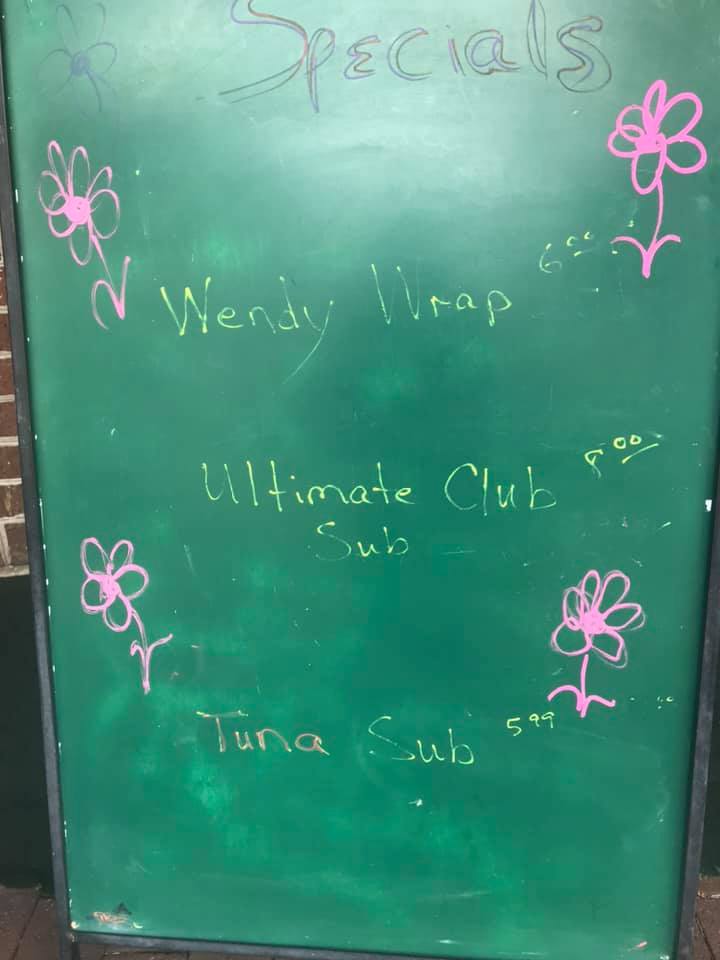 Specials
Wendy Wrap 6.00
Ultimate Club 8.00
Sub
Tuna Sub 5.99